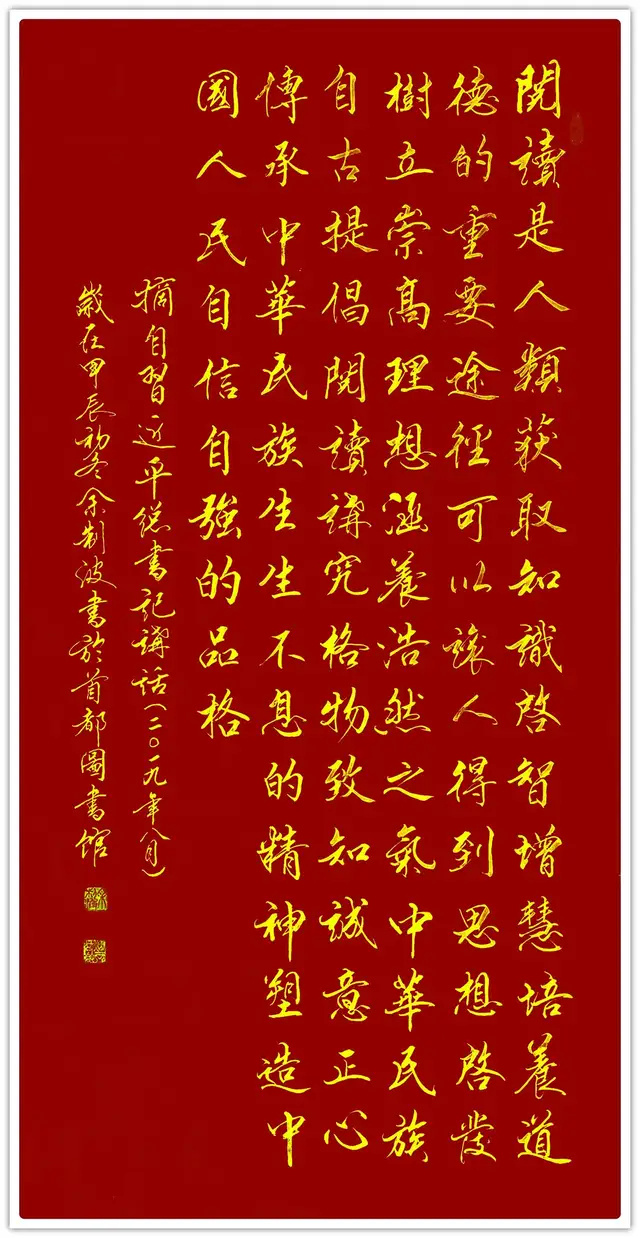 閱讀是人類获取知識啓智增慧培養道
德的重要途徑可以讓人得到思想啓發
樹立崇高理想涵養浩然之氣中華民族
自古提倡閱讀講究格物致知誠意正心
傳承中華民族生生不息的精神塑造中
國人民自信自強的品格
摘自習近平總書記講話(二〇一九年八月)
歲在甲辰初冬余制波書於首都圖書館